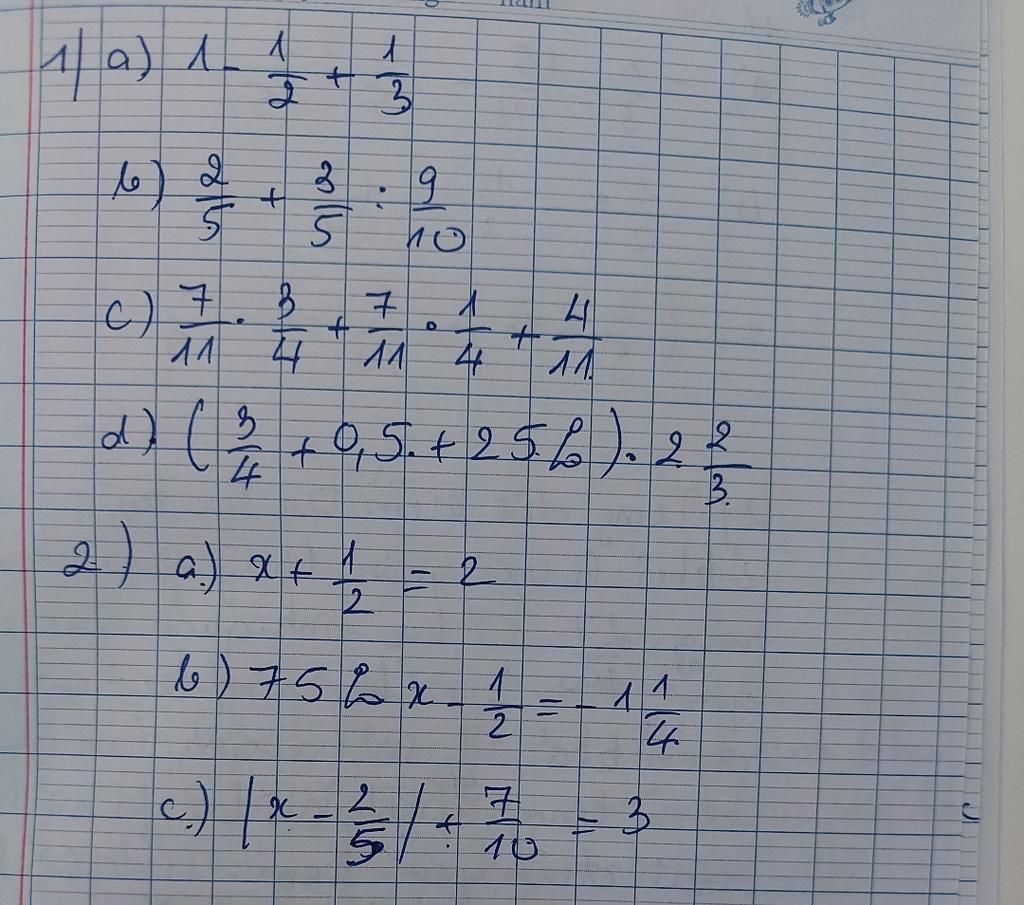 1/ a) 1 - 1/2 + 1/3
b) 2/5 + 3/5 : 9/10
c) 7/11 . 3/4 + 7/11 . 1/4 + 4/11
d) ( 3/4 + 0,5 + 25% ) . 2 2/3
2) a) x + 1/2 = 2
b) 75% x - 1/2 = -1 1/4
c) | x - 2/5 | + 7/10 = 3